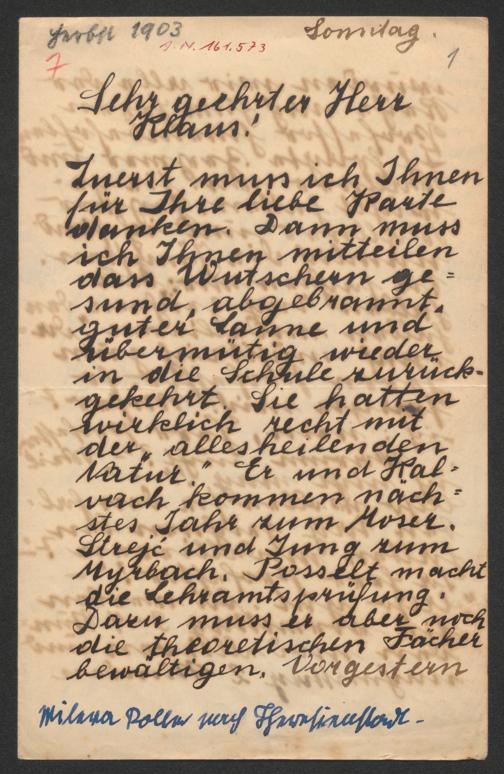 Herbst 1903
Sonntag.
J.N. 161.573
7
1
Sehr geehrter Herr
Klaus!
Zuerst muss ich Ihnen
für Ihre liebe Karte
danken. Dann muss
ich Ihnen mitteilen
dass Wutschern ge=
sund, abgebrannt,
guter Laune und
übermütig wieder
in die Schule zurück-
gekehrt. Sie hatten
wirklich recht mit
der „allesheilenden
Natur." Er und Kal=
vach kommen näch=
stes Jahr zum Moser.
Strejc und Jung zum
Myrbach. Posselt macht
die Lehramtsprüfung.
Dazu muss er aber noch
die theoretischen Fächer
bewältigen. Vorgestern
Milena Roller nach Theresienstadt -